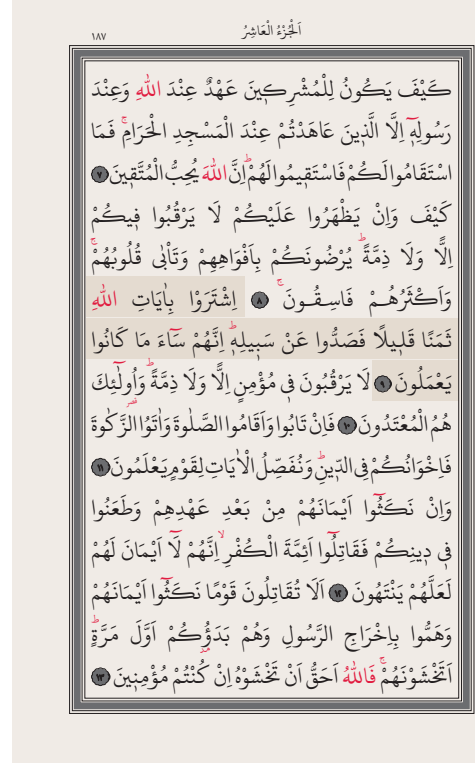 اَلْجُزْءُ الْعَاشِرُ
١٨٧
كَيْفَ يَكُونُ لِلْمُشْرِك۪ينَ عَهْدٌ عِنْدَ اللّٰهِ وَعِنْدَ
رَسُولِه۪ٓ اِلَّا الَّذ۪ينَ عَاهَدْتُمْ عِنْدَ الْمَسْجِدِ الْحَرَامِۚ فَمَا
اسْتَقَامُوا لَكُمْ فَاسْتَق۪يمُوا لَهُمْۜ اِنَّ اللّٰهَ يُحِبُّ الْمُتَّق۪ينَ ٧
كَيْفَ وَاِنْ يَظْهَرُوا عَلَيْكُمْ لَا يَرْقُبُوا ف۪يكُمْ
اِلًّا وَلَا ذِمَّةًۜ يُرْضُونَكُمْ بِاَفْوَاهِهِمْ وَتَأْبٰى قُلُوبُهُمْۚ
وَاَكْثَرُهُمْ فَاسِقُونَۚ ٨ اِشْتَرَوْا بِاٰيَاتِ اللّٰهِ
ثَمَنًا قَل۪يلًا فَصَدُّوا عَنْ سَب۪يلِه۪ۜ اِنَّهُمْ سَٓاءَ مَا كَانُوا
يَعْمَلُونَ ٩ لَا يَرْقُبُونَ ف۪ي مُؤْمِنٍ اِلًّا وَلَا ذِمَّةًۜ وَاُو۬لٰٓئِكَ
هُمُ الْمُعْتَدُونَ ١٠ فَاِنْ تَابُوا وَاَقَامُوا الصَّلٰوةَ وَاٰتَوُا الزَّكٰوةَ
فَاِخْوَانُكُمْ فِي الدّ۪ينِۜ وَنُفَصِّلُ الْاٰيَاتِ لِقَوْمٍ يَعْلَمُونَ ١١
وَاِنْ نَكَثُٓوا اَيْمَانَهُمْ مِنْ بَعْدِ عَهْدِهِمْ وَطَعَنُوا
ف۪ي د۪ينِكُمْ فَقَاتِلُٓوا اَئِمَّةَ الْكُفْرِۙ اِنَّهُمْ لَٓا اَيْمَانَ لَهُمْ
لَعَلَّهُمْ يَنْتَهُونَ ١٢ اَلَا تُقَاتِلُونَ قَوْمًا نَكَثُٓوا اَيْمَانَهُمْ
وَهَمُّوا بِاِخْرَاجِ الرَّسُولِ وَهُمْ بَدَؤُ۫كُمْ اَوَّلَ مَرَّةٍۜ
اَتَخْشَوْنَهُمْۚ فَاللّٰهُ اَحَقُّ اَنْ تَخْشَوْهُ اِنْ كُنْتُمْ مُؤْمِن۪ينَ ١٣